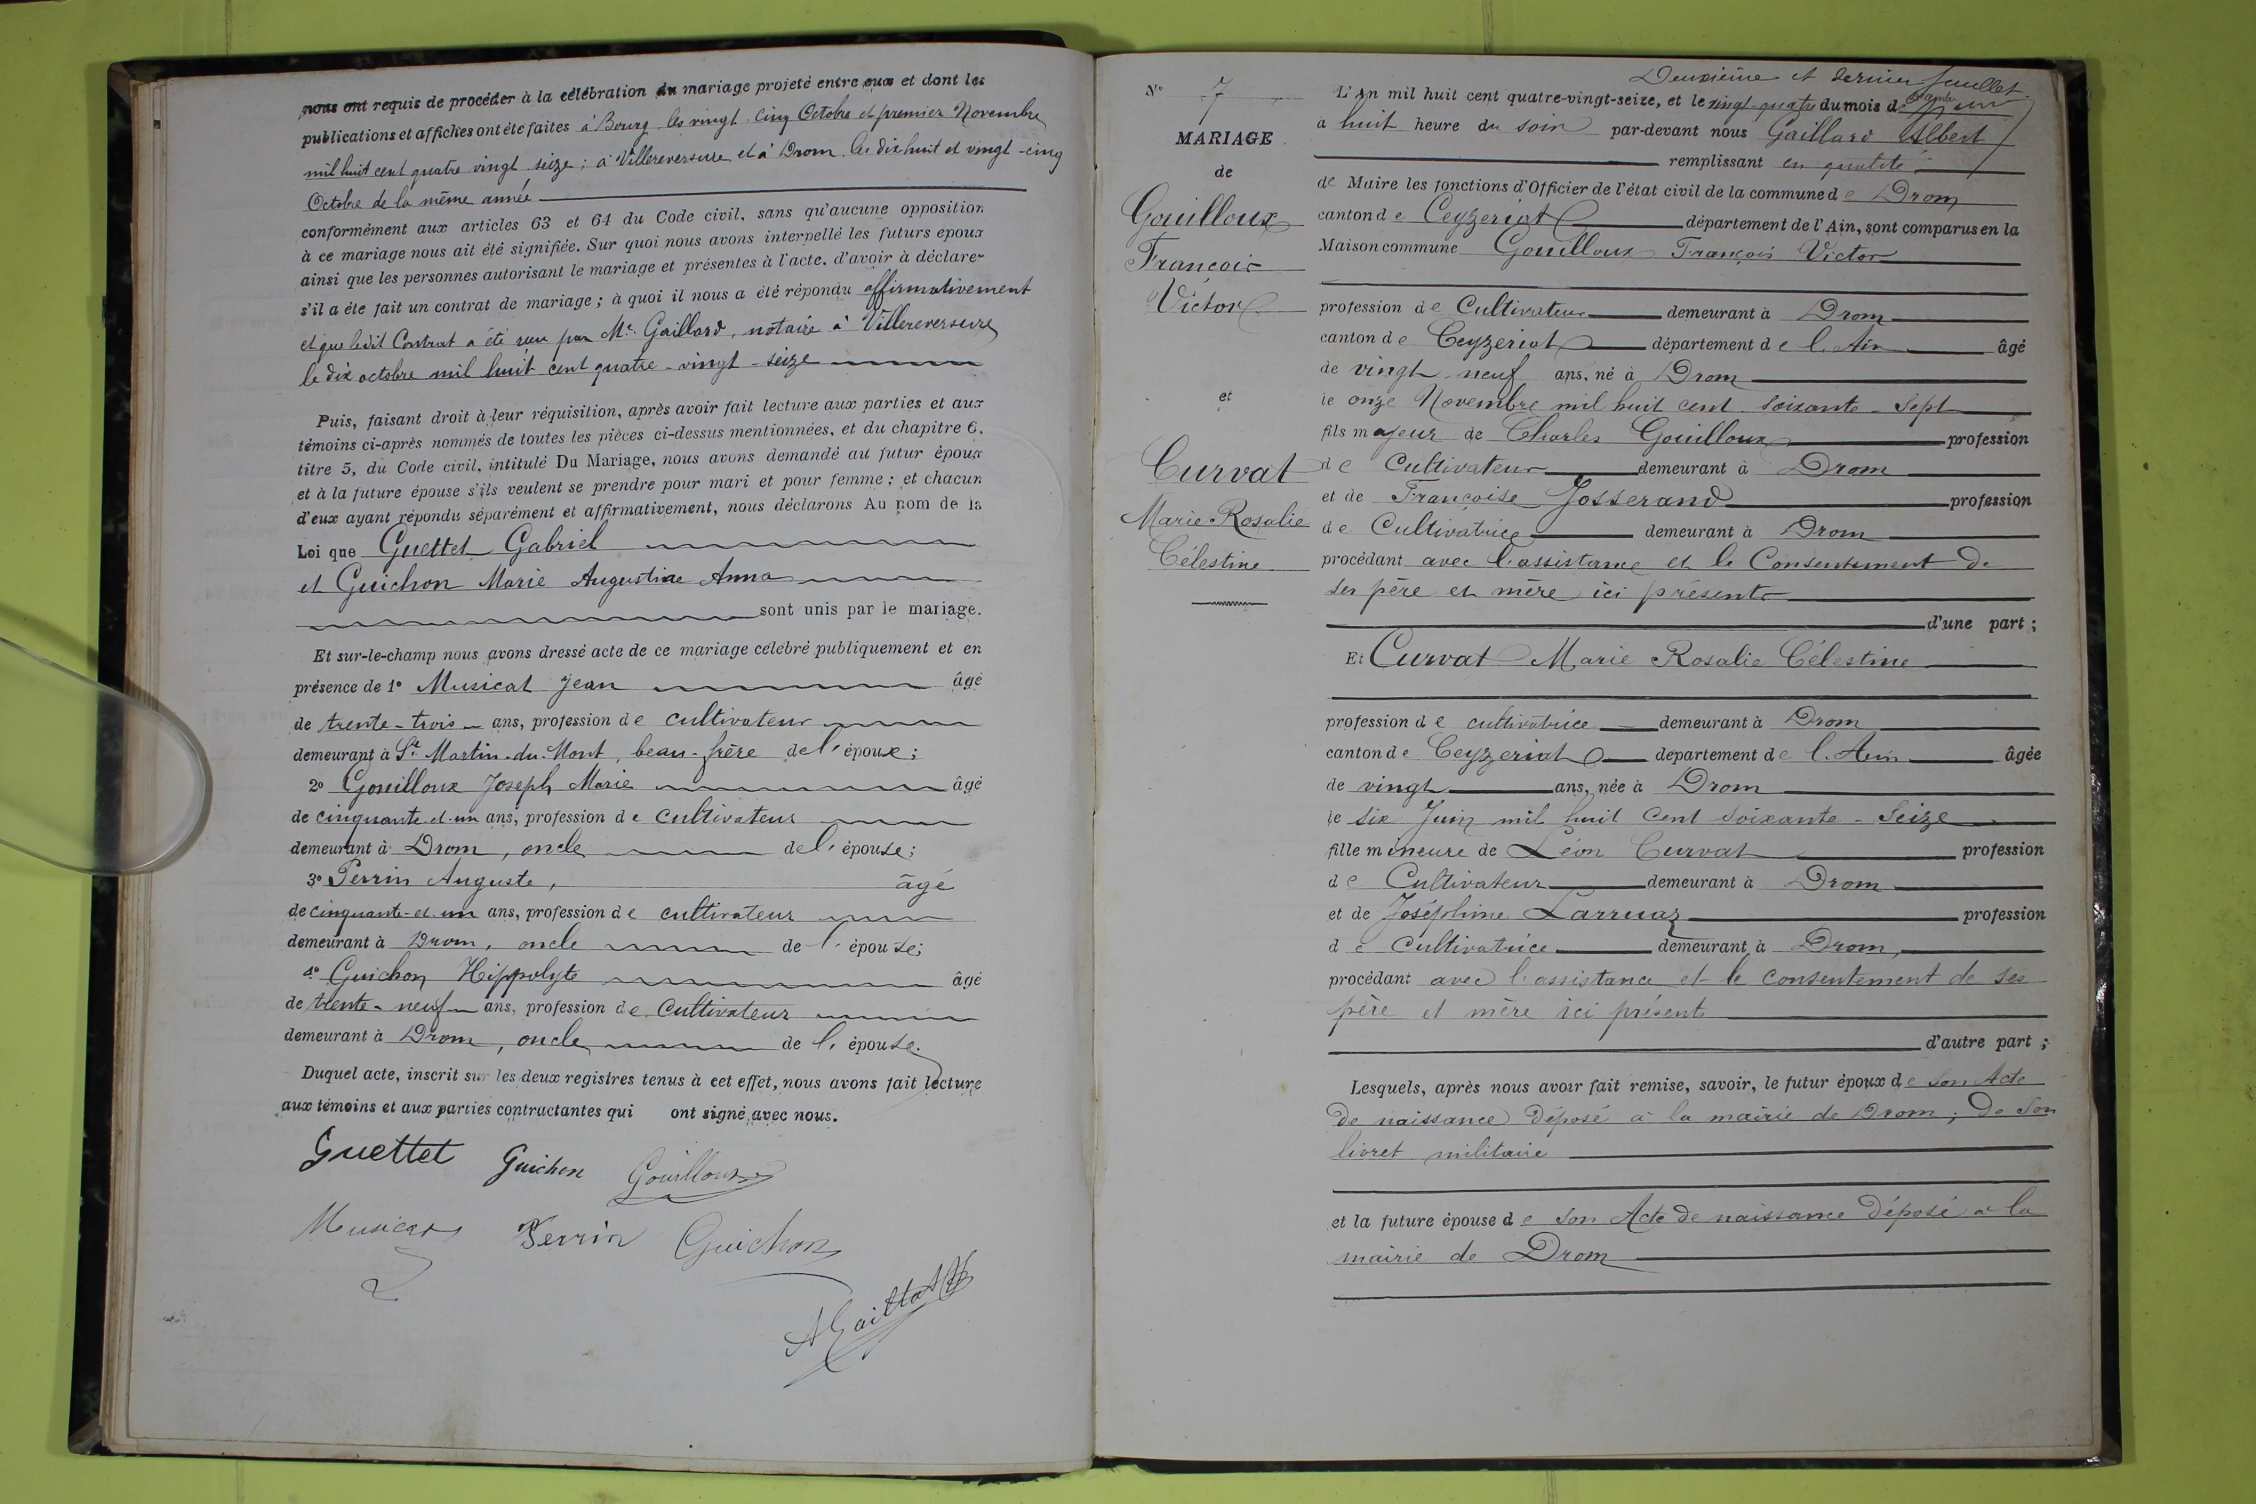 nous ont requis de procéder à la célébration du mariage projeté entre eux et dont les
publications et affiches ont été faites à Bourg les vingt cinq Octobre et premier Novembre
mil huit cent quatre vingt seize ; à Villereversure et à Drom les dix huit et vingt-cinq
Octobre de la même année
conformément aux articles 63 et 64 du Code civil, sans qu'aucune opposition
à ce mariage nous ait été signifiée. Sur quoi nous avons interpellé les futurs époux
ainsi que les personnes autorisant le mariage et présentes à l'acte, d'avoir à déclarer
s'il a été fait un contrat de mariage ; à quoi il nous a été répondu affirmativement
et que ledit Contrat a été reçu par Me. Gaillard, notaire à Villereversure
le dix octobre mil huit cent quatre-vingt-seize
Puis, faisant droit à leur réquisition, après avoir fait lecture aux parties et aux
témoins ci-après nommés de toutes les pièces ci-dessus mentionnées, et du chapitre 6,
titre 5, du Code civil, intitulé Du Mariage, nous avons demandé au futur époux
et à la future épouse s'ils veulent se prendre pour mari et pour femme ; et chacun
d'eux ayant répondu séparément et affirmativement, nous déclarons Au nom de la
Loi que Guettet Gabriel
et Guichon Marie Augustine Anna
sont unis par le mariage.
Et sur-le-champ nous avons dressé acte de ce mariage célébré publiquement et en
présence de 1° Musicat Jean âgé
de trente-trois ans, profession de cultivateur
demeurant à St. Martin-du-Mont, beau-frère de l'époux ;
2° Gouilloux Joseph Marie âgé
de cinquante-et-un ans, profession de cultivateur
demeurant à Drom, oncle de l'épouse ;
3° Perrin Auguste, âgé
de cinquante-et-un ans, profession de cultivateur
demeurant à Drom, oncle de l'épouse ;
4° Guichon Hippolyte âgé
de trente-neuf ans, profession de cultivateur
demeurant à Drom, oncle de l'épouse.
Duquel acte, inscrit sur les deux registres tenus à cet effet, nous avons fait lecture
aux témoins et aux parties contractantes qui ont signé avec nous.
Guettet Guichon Gouilloux
Musicat Perrin Guichon
A Gaillard
Deuxième et dernier feuillet.
N° 7
MARIAGE
de
Gouilloux
François
Victor
et
Curvat
Marie-Rosalie
Célestine
L'An mil huit cent quatre-vingt-seize, et le vingt-quatre du mois de
a huit heure du soir par-devant nous Gaillard Albert
remplissant en qualité
de Maire les fonctions d'Officier de l'état civil de la commune de Drom
canton de Ceyzeriat département de l'Ain, sont comparus en la
Maison commune Gouilloux François Victor
profession de Cultivateur demeurant à Drom
canton de Ceyzeriat département de l'Ain âgé
de vingt-neuf ans, né à Drom
le onze Novembre mil huit cent soixante-sept
fils majeur de Charles Gouilloux profession
de Cultivateur demeurant à Drom
et de Françoise Josserand profession
de Cultivatrice demeurant à Drom
procédant avec l'assistance et le Consentement de
ses père et mère ici présents
d'une part ;
Et Curvat Marie Rosalie Célestine
profession de cultivatrice demeurant à Drom
canton de Ceyzeriat département de l'Ain âgée
de vingt ans, née à Drom
le six Juin mil huit cent soixante-seize
fille mineure de Léon Curvat profession
de Cultivateur demeurant à Drom
et de Joséphine Larruaz profession
de cultivatrice demeurant à Drom,
procédant avec l'assistance et le consentement de ses
père et mère ici présents
d'autre part ;
Lesquels, après nous avoir fait remise, savoir, le futur époux de son Acte
de naissance déposé à la mairie de Drom ; de son
livret militaire
et la future épouse de son Acte de naissance déposé à la
mairie de Drom